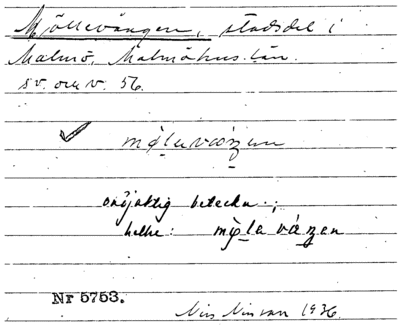 Möllevången, stadsdel i
Malmö, Malmöhus län.
sv. om v. 56.
✓ mø̣lavɷŋ̱en
onöjaktig beteckn.;
hellre: mø̣̀la váŋ̱en
Nr 5753.
Nils Nilsson 1936.